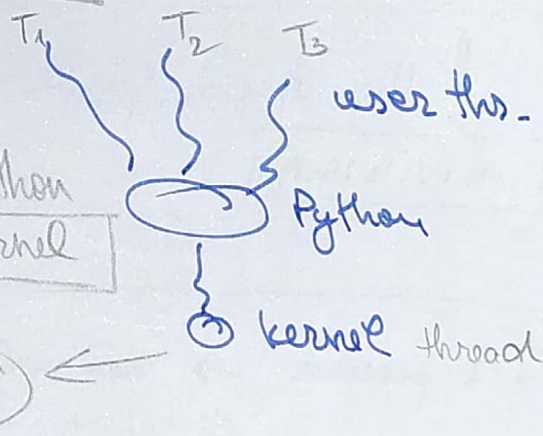 T1 T2 T3
user ths.
Python
kernel thread